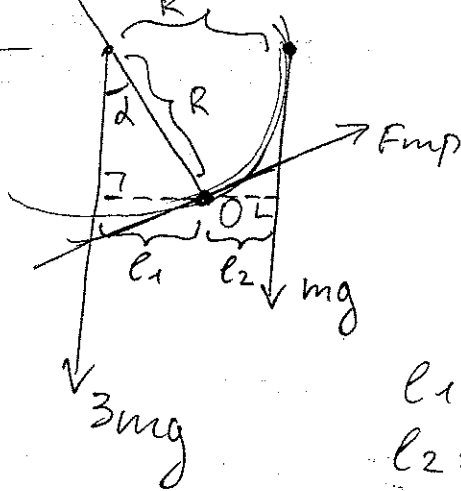 R
α
R
Fтр
O
l₁
l₂
mg
3mg
l₁
l₂ =